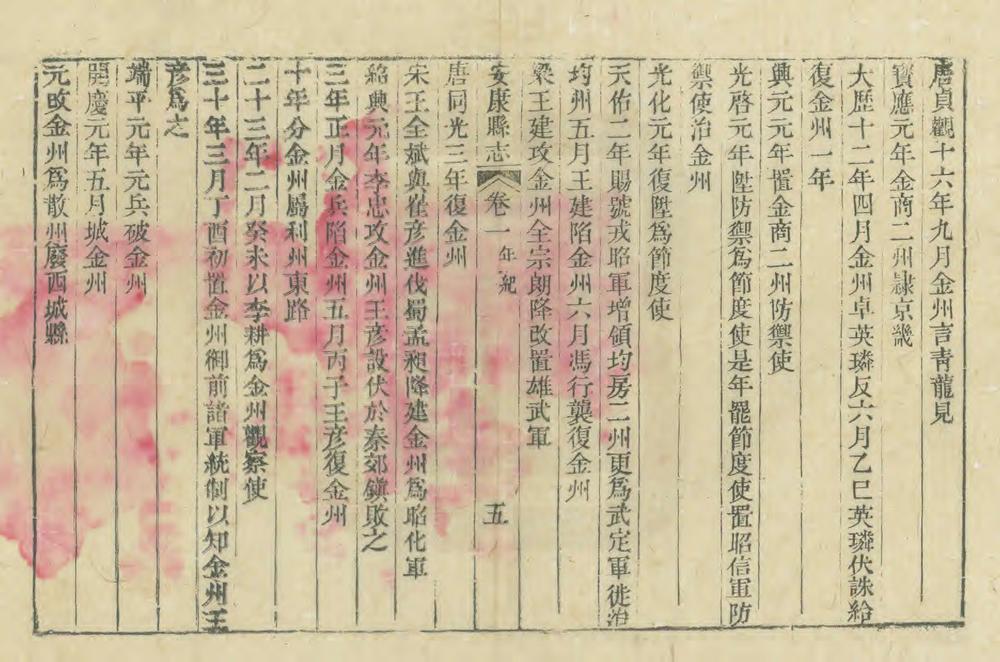 唐貞觀十六年九月金州言靑龍見
寶應元年金商二州隸京畿
大歷十二年四月金州卓英璘反六月乙巳英璘伏誅給
復金州一年
興元元年置金商二州防禦使
光啓元年陞防禦爲節度使是年罷節度使置昭信軍防
禦使治金州
光化元年復陞爲節度使
天佑二年賜號戎昭軍增領均房二州更爲武定軍徙治
均州五月王建陷金州六月馮行襲復金州
梁王建攻金州全宗朗降改置雄武軍
安康縣志 卷一 年紀 五
唐同光三年復金州
宋王全斌與崔彥進伐蜀孟昶降建金州爲昭化軍
紹興元年李忠攻金州王彥設伏於秦郊鎭敗之
三年正月金兵陷金州五月丙子王彥復金州
十年分金州屬利州東路
二十三年二月癸未以李耕爲金州觀察使
三十年三月丁酉初置金州御前諸軍統制以知金州王
彥爲之
端平元年元兵破金州
開慶元年五月城金州
元改金州爲散州廢西城縣